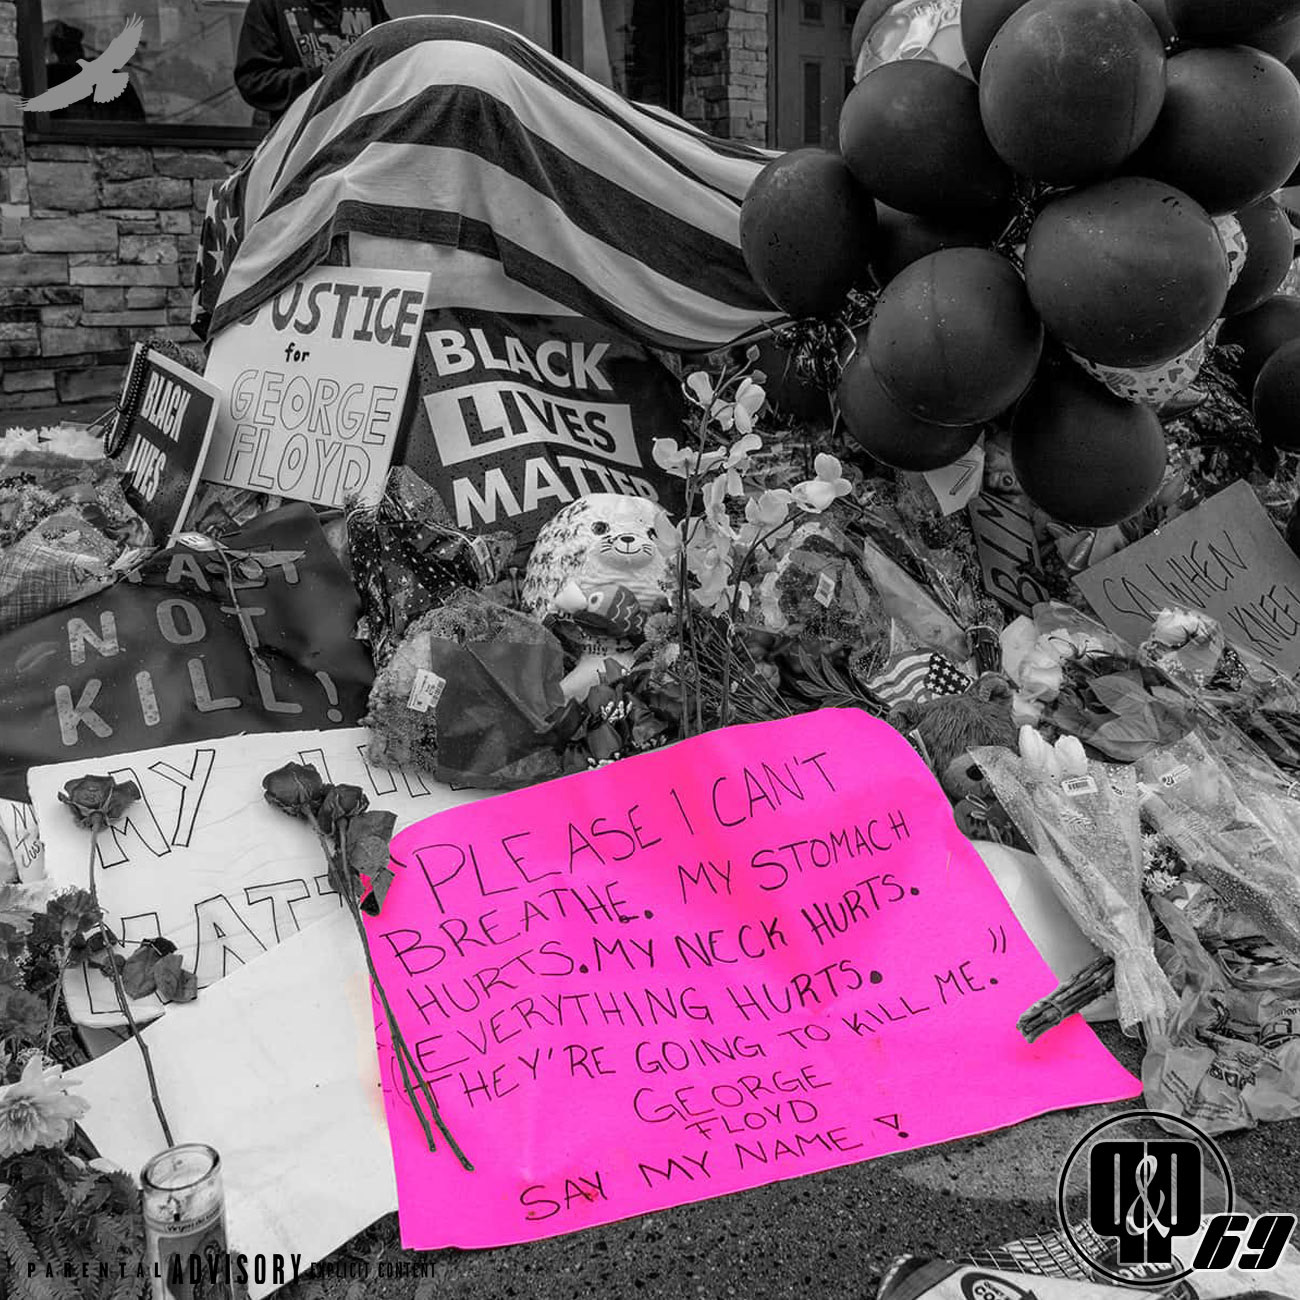 JUSTICE
for
GEORGE
FLOYD
BLACK
LIVES
MATTER
BLACK
LIVES
NOT
KILL!
SO WHEN
MY
"PLEASE I CAN'T
BREATHE. MY STOMACH
HURTS. MY NECK HURTS.
EVERYTHING HURTS.
THEY'RE GOING TO KILL ME."
GEORGE
FLOYD
SAY MY NAME!
PARENTAL ADVISORY EXPLICIT CONTENT
P&P69